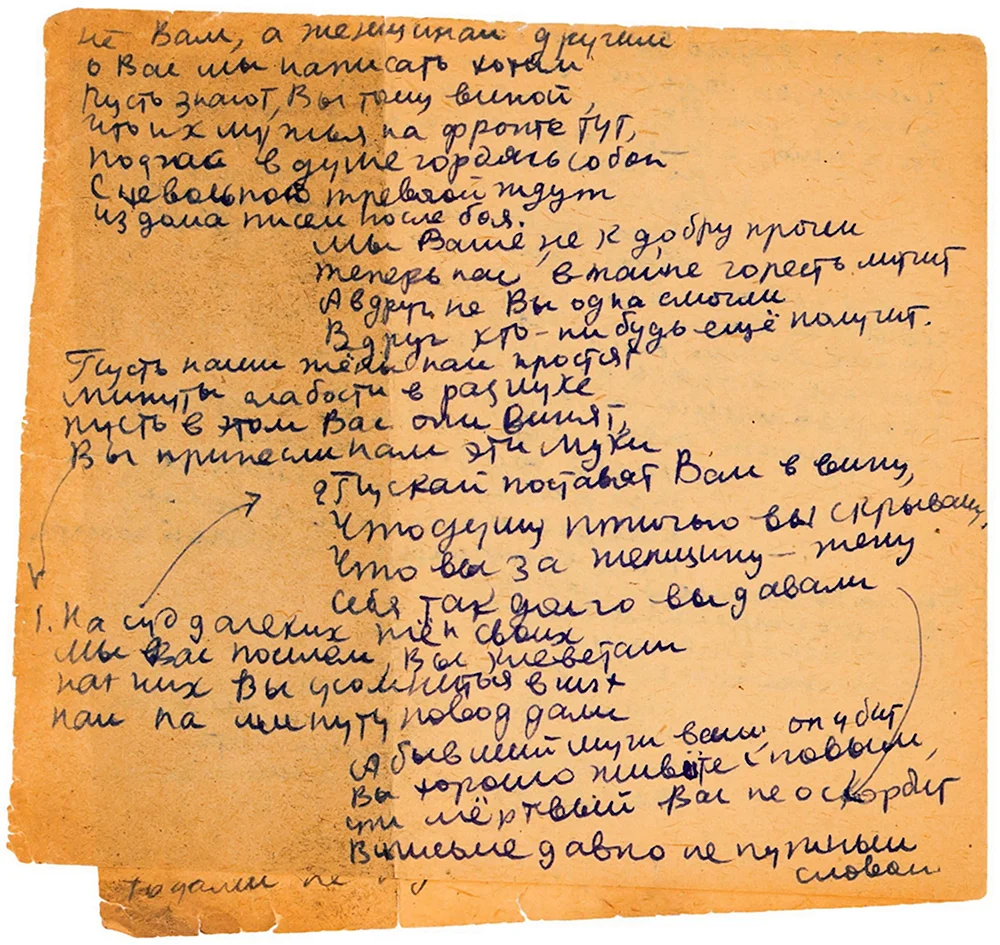 не Вам, а женщинам другим
о Вас мы написать хотим
Пусть знают, Вы тому виной,
что их мужья на фронте тут,
подчас в душе гордясь собой
С невольною тревгой ждут
из дома писем после боя.
Мы Ваше не к добру прочли
теперь нас втайне горесть мучит
А вдруг не Вы одна смогли
Вдруг кто-нибудь ещё получит.
Пусть наши жёны нам простят
минуты слабости в разлуке
пусть в этом Вас они винят,
Вы принесли нам эти муки
2 Пускай поставят Вам в вину,
Что душу птичью вы скрывали,
Что вы за женщину - жену
себя так долго выдавали
1. На суд далеких жён своих
Мы Вас пошлем, Вы клеветали
на них Вы усомниться в них
нам на минуту повод дали
А бывший муж ваш он убит
Вы хорошо живёте с новым,
уж мёртвый Вас не оскорбит
В письме давно не нужным
словом
годами не